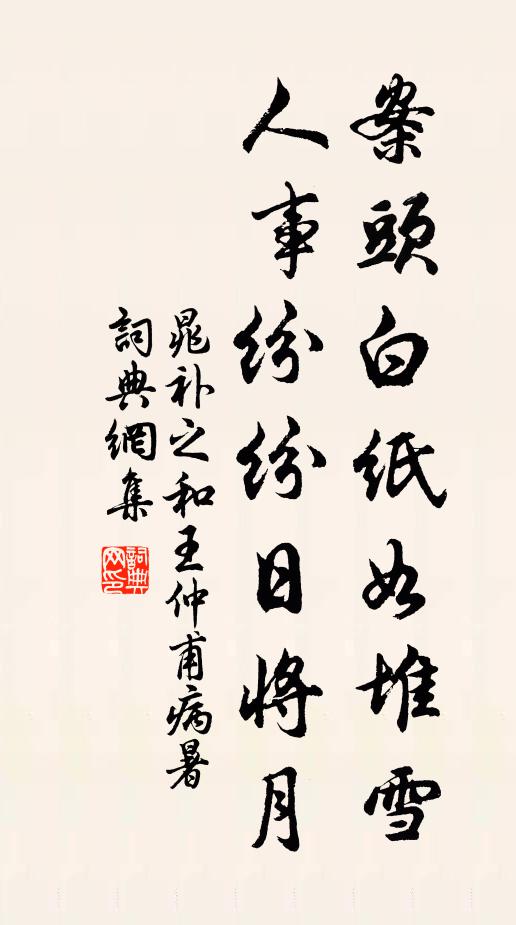 案頭白紙如堆雪
人事紛紛日將月
晁补之和王仲甫病暑
詞典網集
詞典网印